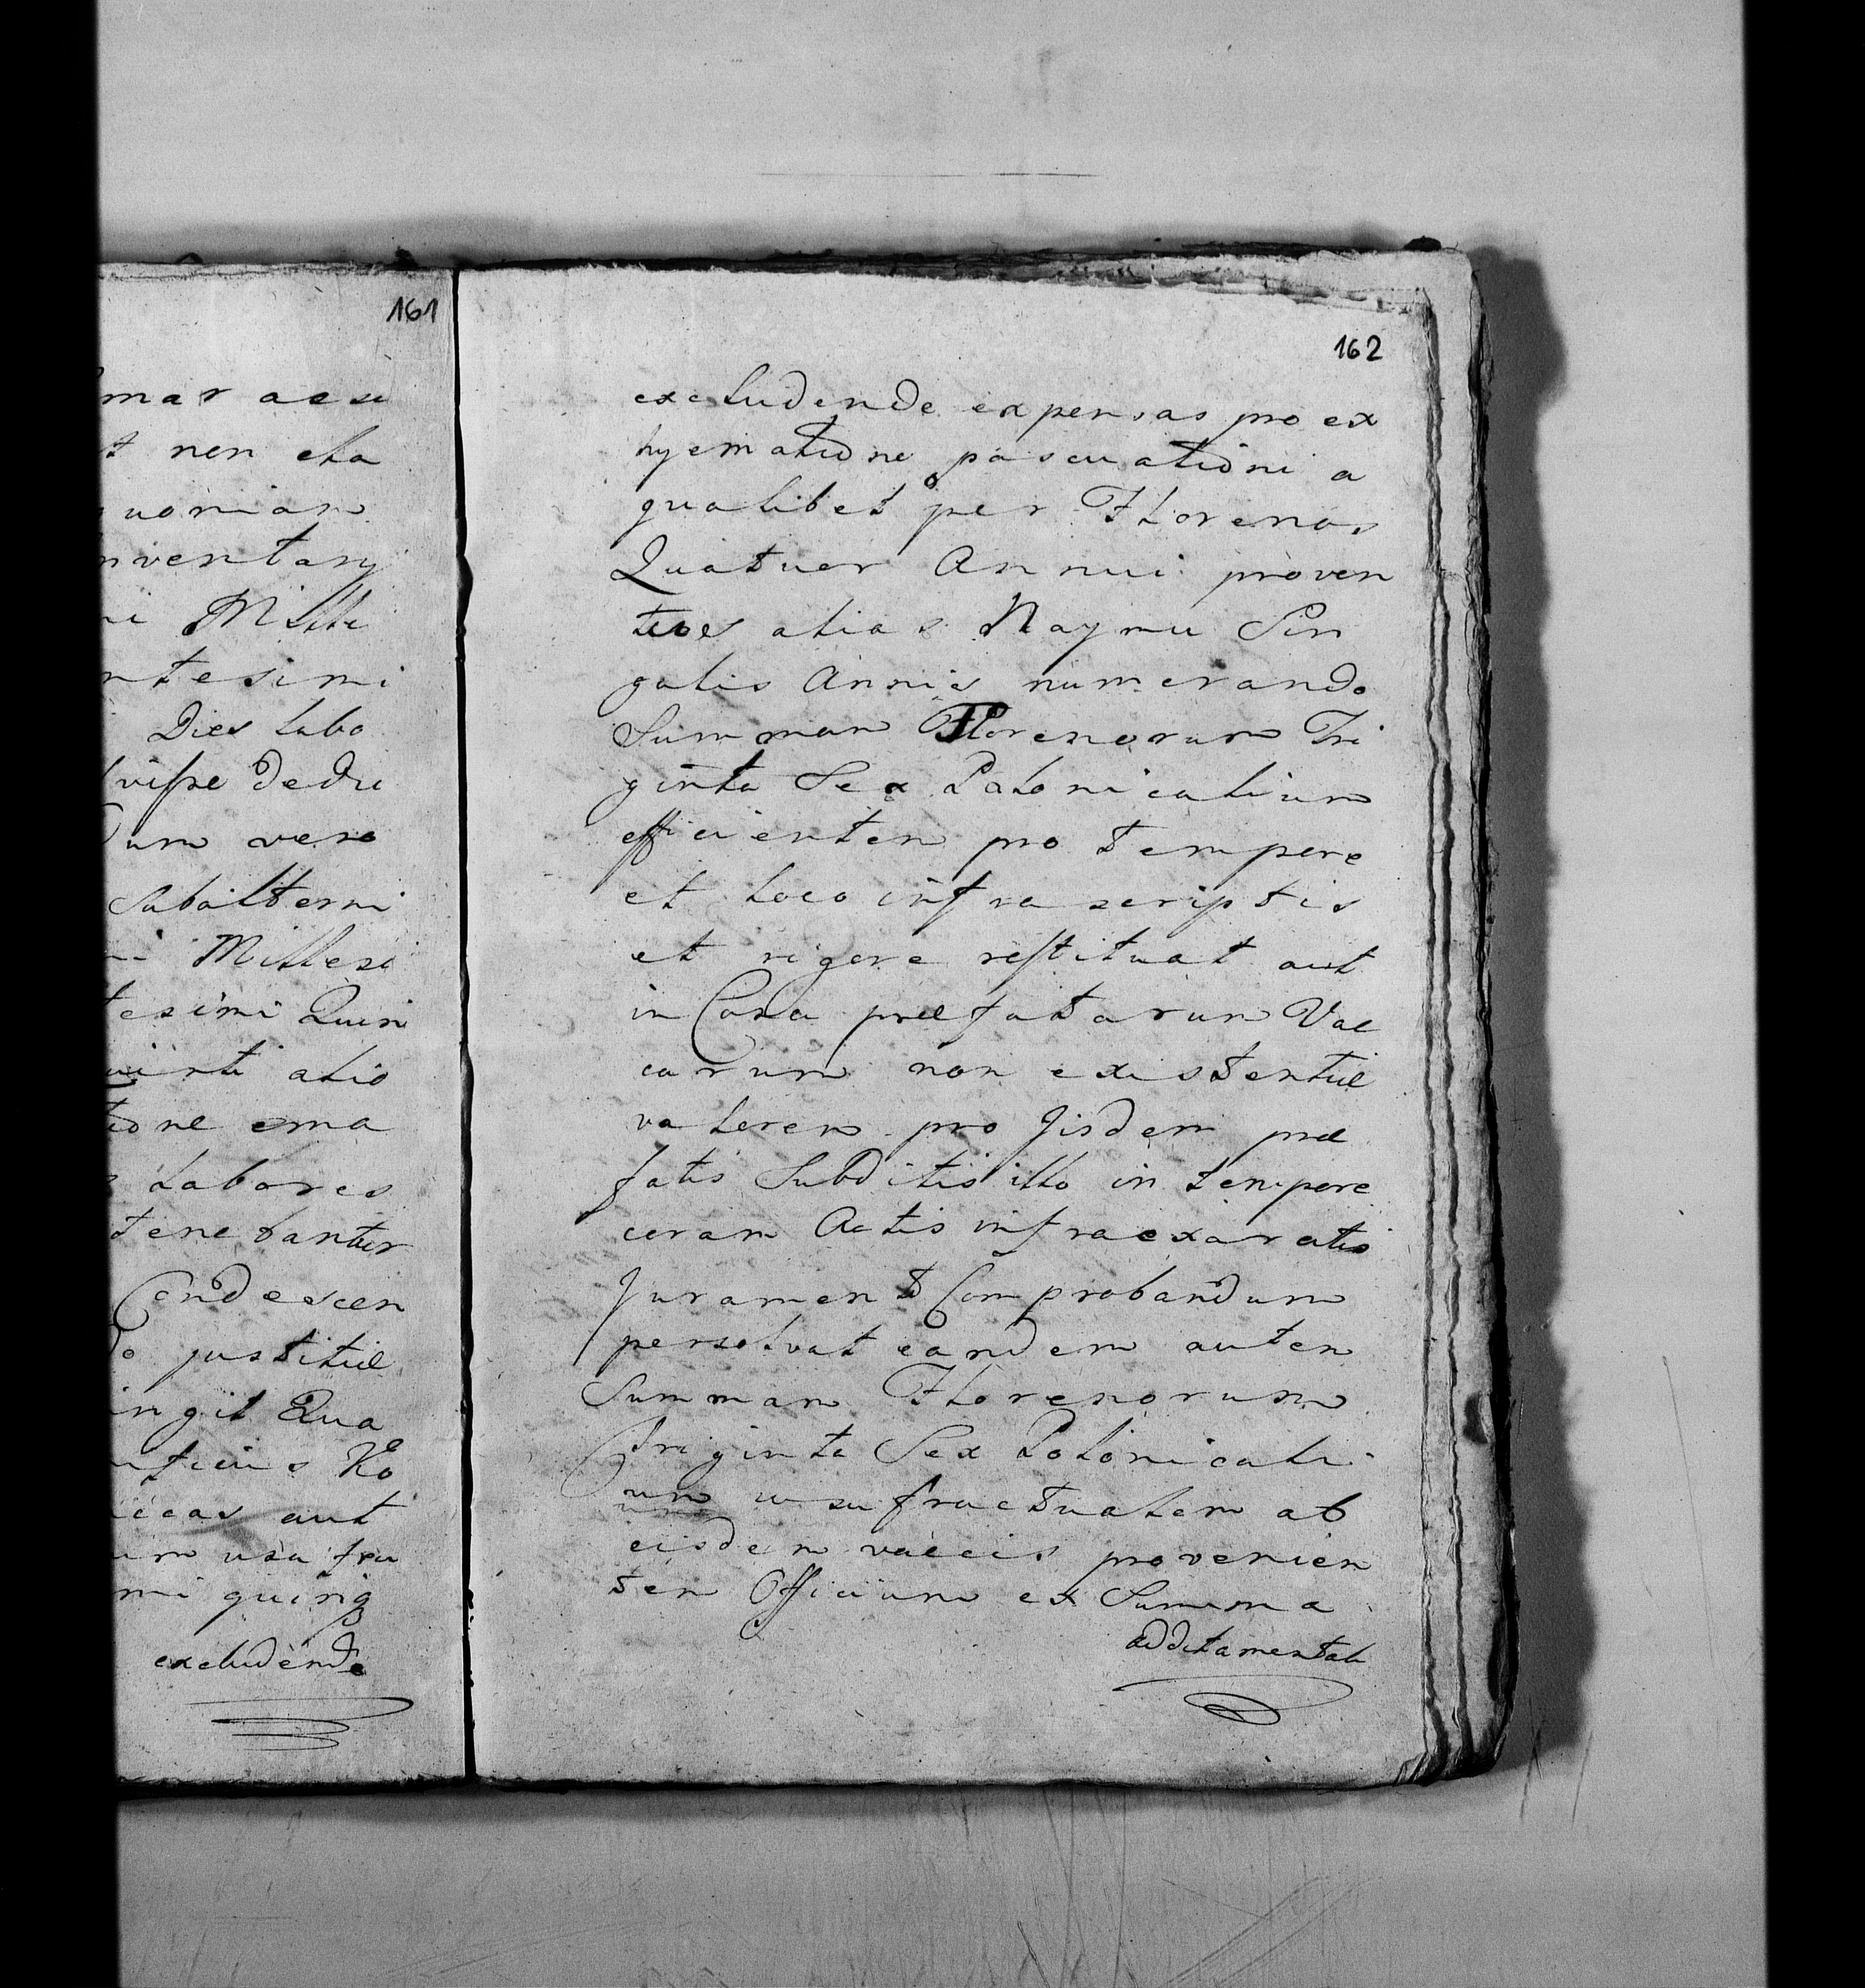 161
mar acsu
t non cla
uoniam
nventary
ni Mille
ntesimi
Dies labo
visse dedu
um vero
Subalterni
ni Millesi
tesimi Quin
uinti alio
tione ema
s Labores
tenebantur
Condescen
do justitiæ
ingit Qua
utcius Ko
accas aut
um usu fru
mi quinq
excludende
162
excludende expensas pro ex
hyematione pascuationi a
qualibet per Florenos
Quatuor Annui proven
tues alias Naymu Sin
gulis Annis numerando
Summam Florenorum Tri
ginta Sex Polonicalium
efficientem pro tempore
et loco infra scriptis
et rigore restituat aut
in Casu præfatarum Vac
carum non existentiæ
valorem pro Jisdem præ
fatis Subditis illo in tempore
coram Actis infraexaratis
Jurament Comprobandum
persolvat eandem autem
Summam Florenorum
Triginta Sex Polonicali
um usufructualem ab
eisdem vaccis provenien
tem Officium ex Summa
additamentali